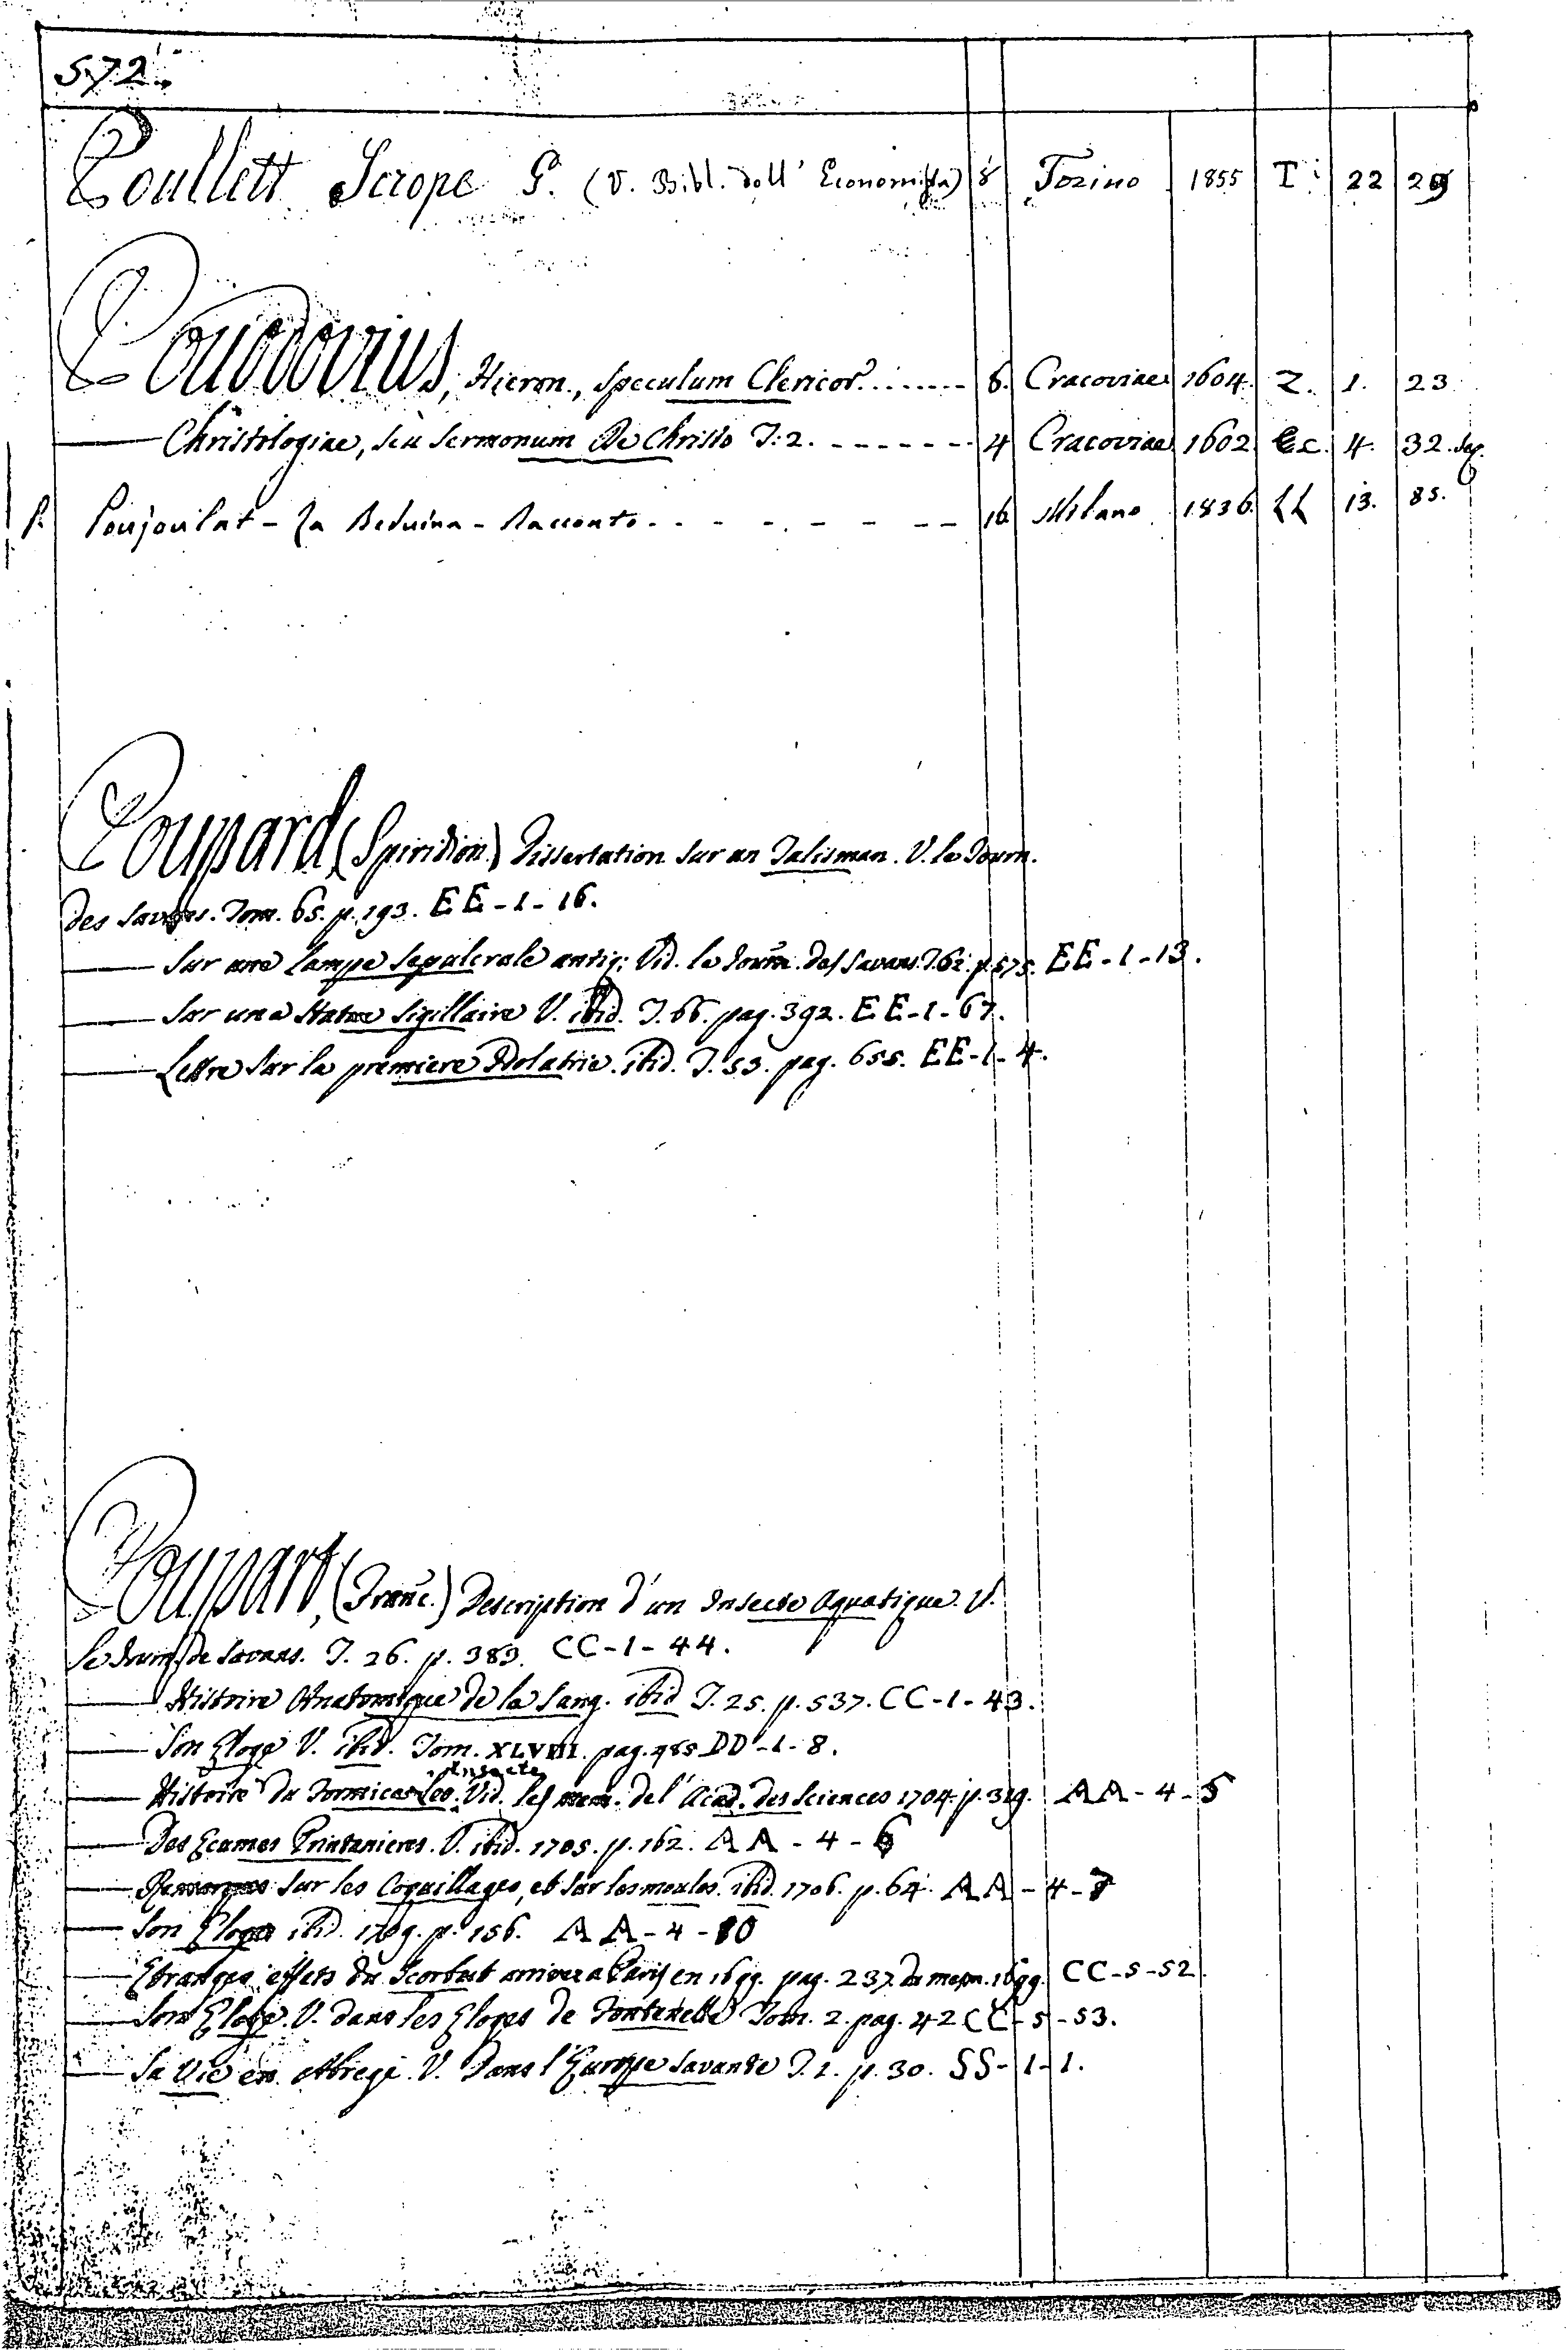 572.
Poullett Scrope G. (V. Bibl. dell' Economista) 8 Torino 1855 T. 22 29
Pouodovius, Hieron., Speculum Clericor. ....... 8. Cracoviae 1604. Z. 1. 23
Christologiae, seu Sermonum De Christo T: 2. ------- 4 Cracoviae 1602 4. 32.
P. Poujoulat - La Beduina - Racconto. - - - - - - - - 16 Milano 1836. LL 13. 85.
Poupard (Spiridion.) Dissertation sur un Talisman. V. le Journ.
des Savans. Tom. 65. p. 193. EE-1-16.
Sur une Lampe Sepulcrale antiq: Vid. le Journ. des Savans. T. 62. p. 575. EE-1-13.
Sur une Statue Sigillaire V. ibid. T. 66. pag. 392. EE-1-67.
Lettre sur la premiere Idolatrie. ibid. T. 53. pag. 655. EE-1-4.
Poupart, (Franc.) Description d'un Insecte Aquatique. V.
le Journ. de Savans. T. 26. p. 383. CC-1-44.
Histoire Anatomique de la Sang. ibid T. 25. p. 537. CC-1-43.
Son Eloge V. ibid. Tom. XLVIII. pag. 485 DD-1-8.
Insecte
Histoire du Formica-Leo. Vid. les mem. de l'Acad. des Sciences 1704. p. 319. AA-4-5
Des Ecumes Printanieres. V. ibid. 1705. p. 162. AA-4-6
Remarques sur les Coquillages, et sur les moules. ibid. 1706. p. 64. AA-4-7
Son Eloge ibid. 1709. p. 156. AA-4-10
Etranges effets du Scorbut arrivez a Paris en 1699. pag. 237. du mem. 1699. CC-5-52.
Son Eloge. V. dans les Eloges de Fontenelle Tom. 2. pag. 42 CC-5-53.
Sa Vie en Abregé. V. Dans l'Europe Savante T. 1. p. 30. SS-1-1.